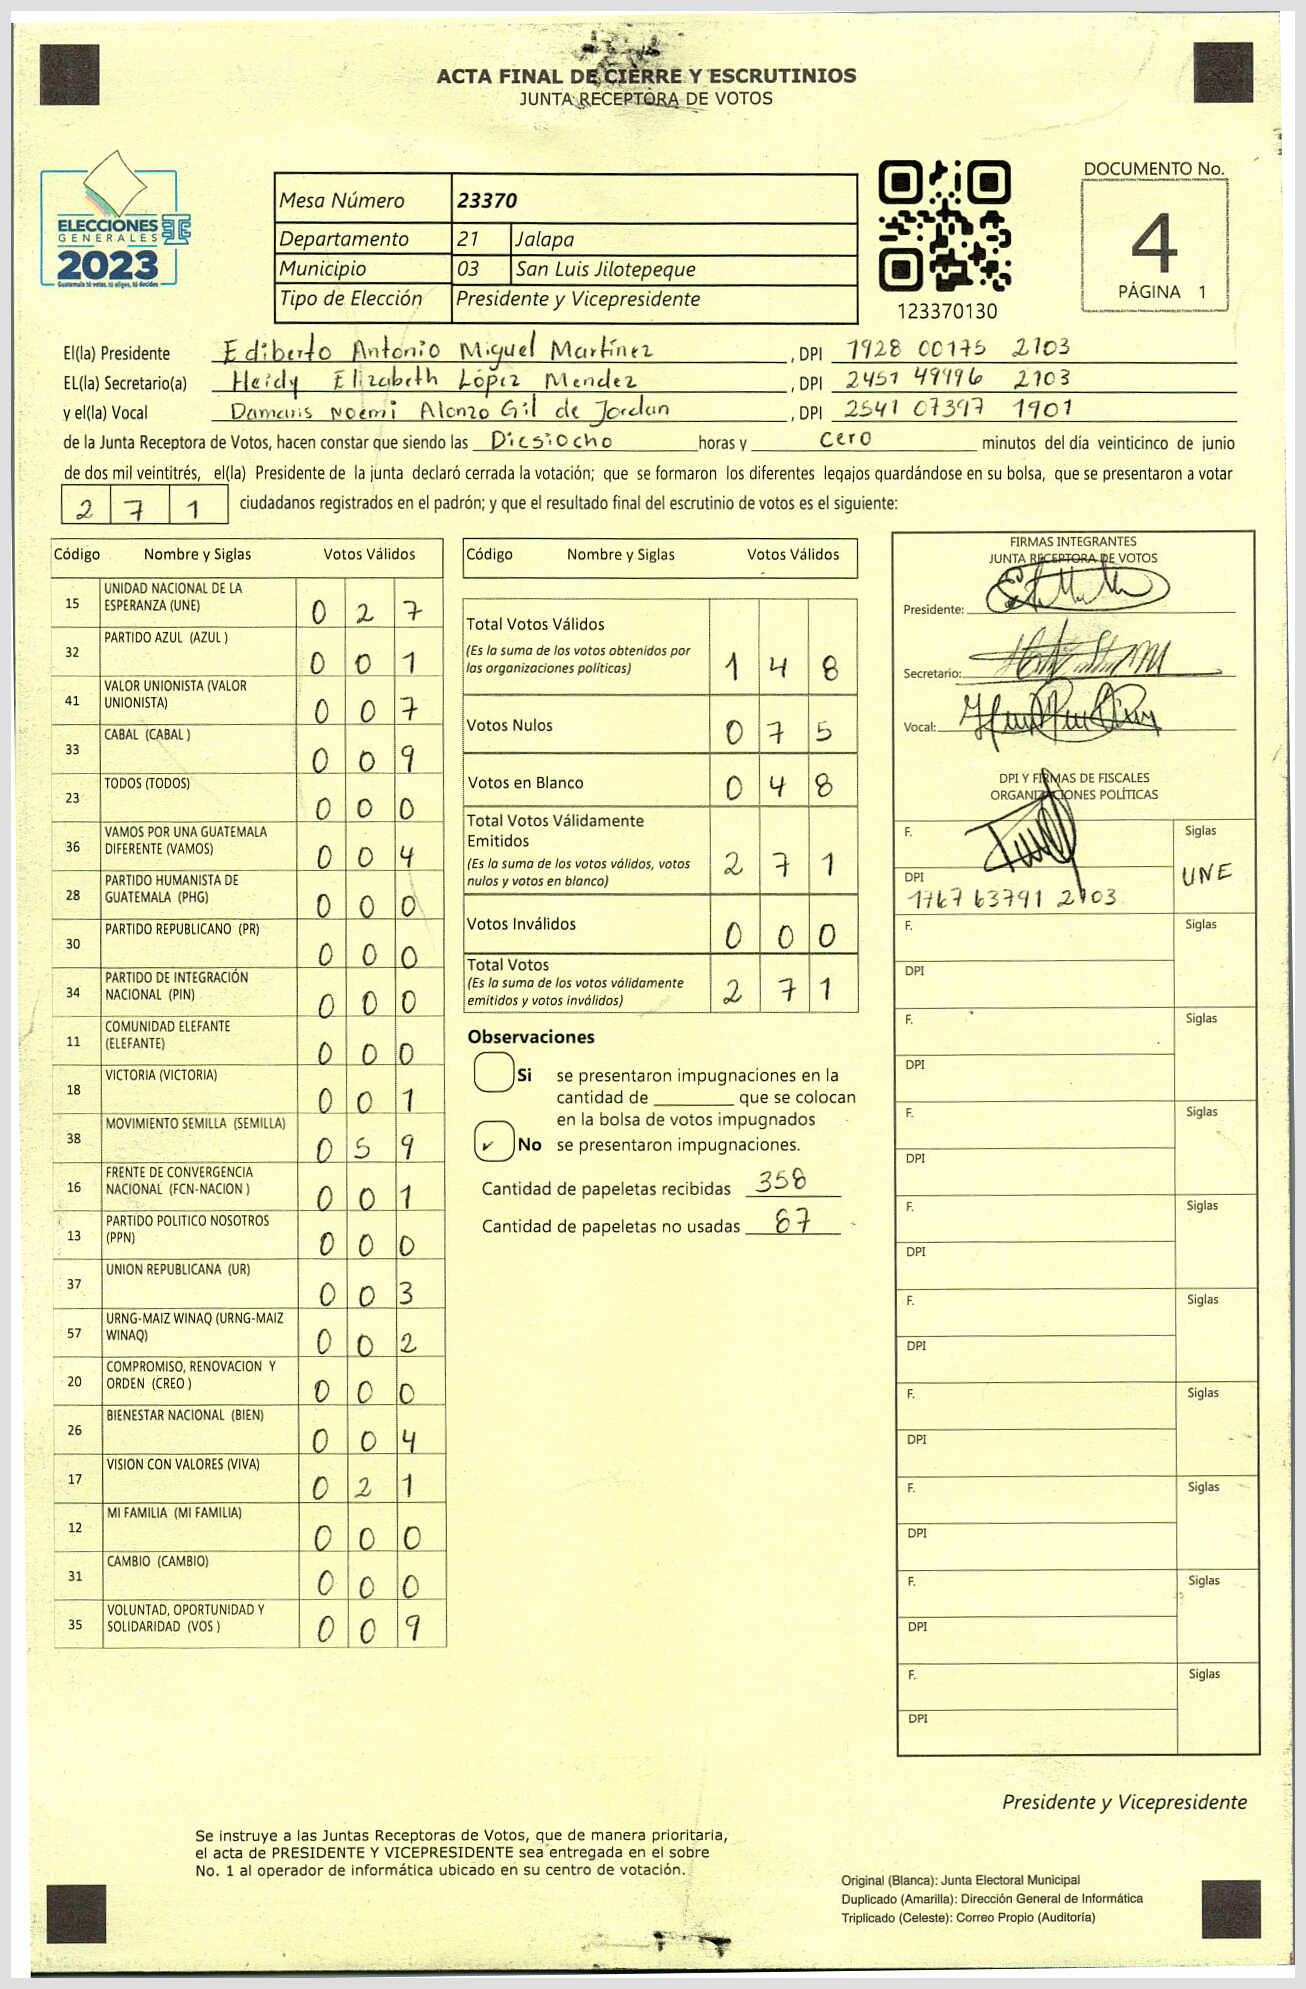 ACTA FINAL DE CIERRE Y ESCRUTINIOS
JUNTA RECEPTORA DE VOTOS
ELECCIONES
GENERALES
2023
Guatemala tú votas, tú eliges, tú decides
Mesa Número 23370
Departamento 21 Jalapa
Municipio 03 San Luis Jilotepeque
Tipo de Elección Presidente y Vicepresidente
123370130
DOCUMENTO No.
4
PÁGINA 1
El(la) Presidente Ediberto Antonio Miguel Martínez, DPI 1928 00175 2103
EL(la) Secretario(a) Heidy Elizabeth López Mendez, DPI 2451 49496 2103
y el(la) Vocal Damaris Noemi Alonzo Gil de Jordan, DPI 2541 07397 1901
de la Junta Receptora de Votos, hacen constar que siendo las Diesiocho horas y cero minutos del día veinticinco de junio
de dos mil veintitrés, el(la) Presidente de la junta declaró cerrada la votación; que se formaron los diferentes legajos quardándose en su bolsa, que se presentaron a votar
271 ciudadanos registrados en el padrón; y que el resultado final del escrutinio de votos es el siguiente:
Código Nombre y Siglas Votos Válidos
15 UNIDAD NACIONAL DE LA ESPERANZA (UNE) 0 2 7
32 PARTIDO AZUL (AZUL ) 0 0 1
41 VALOR UNIONISTA (VALOR UNIONISTA) 0 0 7
33 CABAL (CABAL ) 0 0 9
23 TODOS (TODOS) 0 0 0
36 VAMOS POR UNA GUATEMALA DIFERENTE (VAMOS) 0 0 4
28 PARTIDO HUMANISTA DE GUATEMALA (PHG) 0 0 0
30 PARTIDO REPUBLICANO (PR) 0 0 0
34 PARTIDO DE INTEGRACIÓN NACIONAL (PIN) 0 0 0
11 COMUNIDAD ELEFANTE (ELEFANTE) 0 0 0
18 VICTORIA (VICTORIA) 0 0 1
38 MOVIMIENTO SEMILLA (SEMILLA) 0 5 9
16 FRENTE DE CONVERGENCIA NACIONAL (FCN-NACION ) 0 0 1
13 PARTIDO POLITICO NOSOTROS (PPN) 0 0 0
37 UNION REPUBLICANA (UR) 0 0 3
57 URNG-MAIZ WINAQ (URNG-MAIZ WINAQ) 0 0 2
20 COMPROMISO, RENOVACION Y ORDEN (CREO ) 0 0 0
26 BIENESTAR NACIONAL (BIEN) 0 0 4
17 VISION CON VALORES (VIVA) 0 2 1
12 MI FAMILIA (MI FAMILIA) 0 0 0
31 CAMBIO (CAMBIO) 0 0 0
35 VOLUNTAD, OPORTUNIDAD Y SOLIDARIDAD (VOS ) 0 0 9
Código Nombre y Siglas Votos Válidos
Total Votos Válidos
(Es la suma de los votos obtenidos por
las organizaciones políticas) 1 4 8
Votos Nulos 0 7 5
Votos en Blanco 0 4 8
Total Votos Válidamente
Emitidos
(Es la suma de los votos válidos, votos
nulos y votos en blanco) 2 7 1
Votos Inválidos 0 0 0
Total Votos
(Es la suma de los votos válidamente
emitidos y votos inválidos) 2 7 1
Observaciones
Si se presentaron impugnaciones en la
cantidad de ________ que se colocan
en la bolsa de votos impugnados
✓ No se presentaron impugnaciones.
Cantidad de papeletas recibidas 358
Cantidad de papeletas no usadas 87
FIRMAS INTEGRANTES
JUNTA RECEPTORA DE VOTOS
Presidente:
Secretario:
Vocal:
DPI Y FIRMAS DE FISCALES
ORGANIZACIONES POLÍTICAS
F. Siglas
DPI UNE
1767 63791 2103
F. Siglas
DPI
F. Siglas
DPI
F. Siglas
DPI
F. Siglas
DPI
F. Siglas
DPI
F. Siglas
DPI
F. Siglas
DPI
F. Siglas
DPI
F. Siglas
DPI
Presidente y Vicepresidente
Se instruye a las Juntas Receptoras de Votos, que de manera prioritaria,
el acta de PRESIDENTE Y VICEPRESIDENTE sea entregada en el sobre
No. 1 al operador de informática ubicado en su centro de votación.
Original (Blanca): Junta Electoral Municipal
Duplicado (Amarilla): Dirección General de Informática
Triplicado (Celeste): Correo Propio (Auditoría)